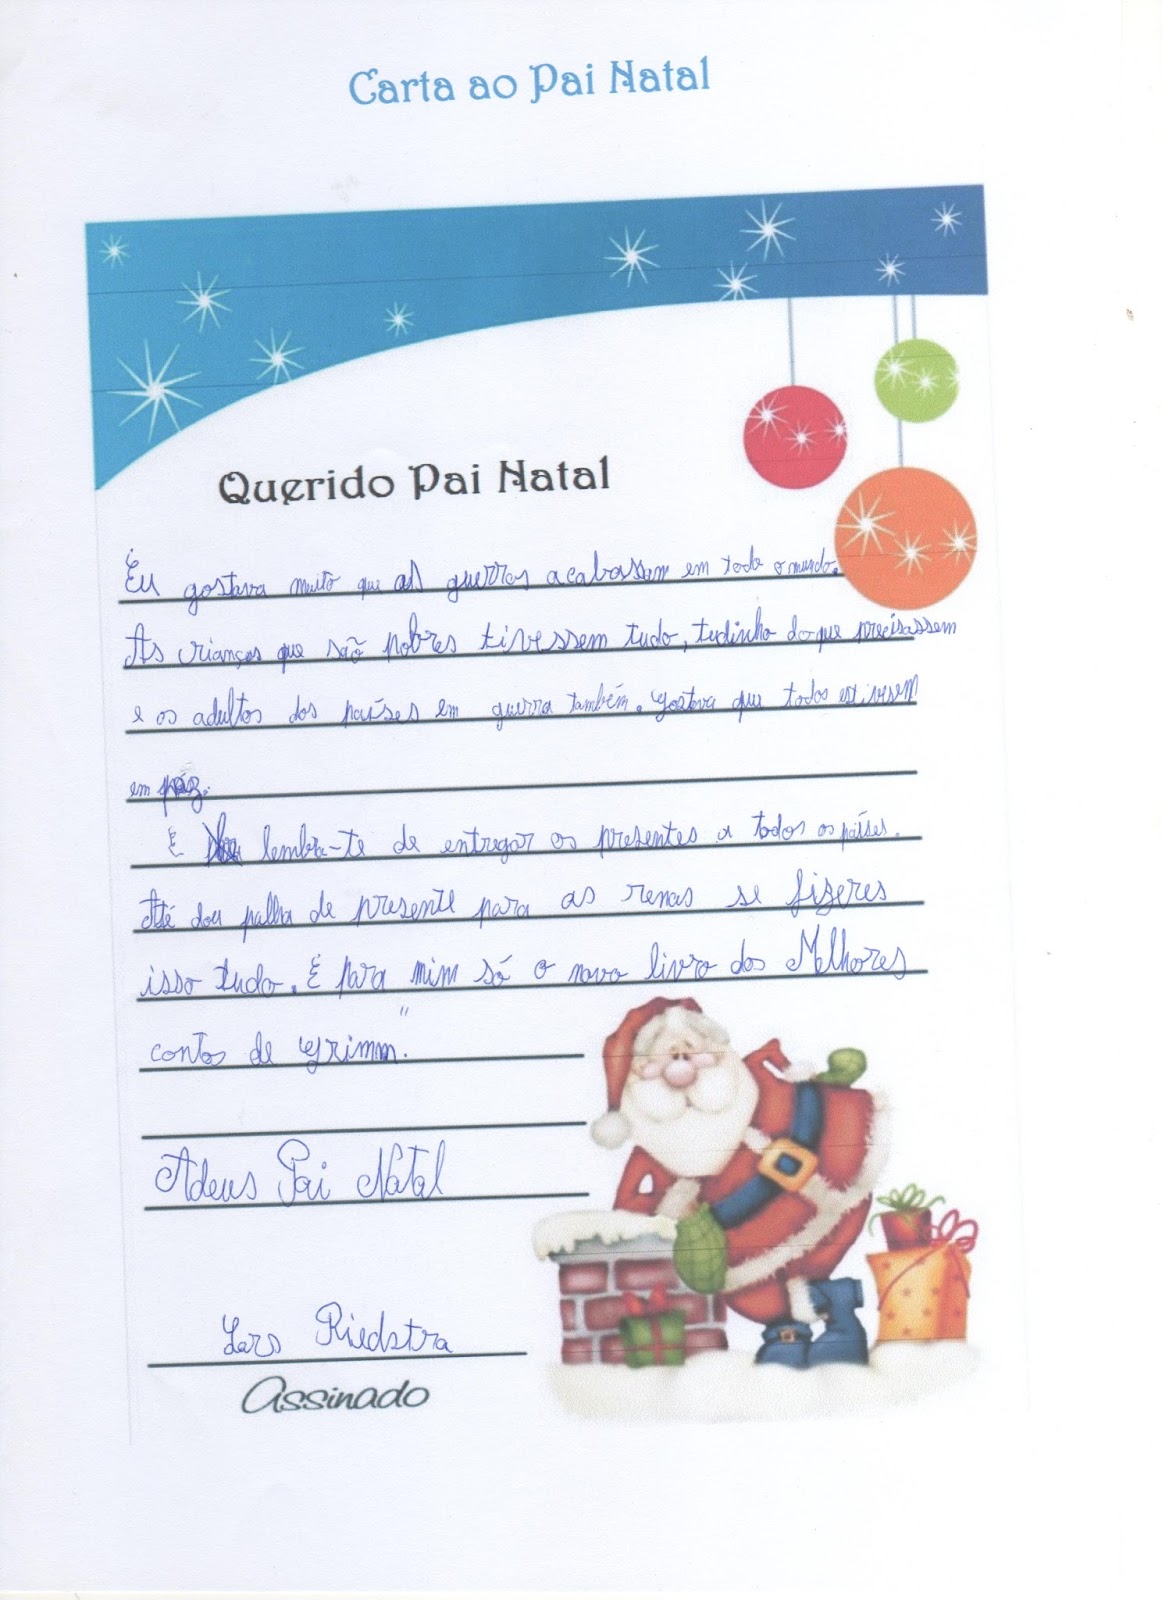 Carta ao Pai Natal
Querido Pai Natal
Eu gostava muito que as guerras acabassem em todo o mundo.
As crianças que são pobres tivessem tudo, tudinho do que precisassem
e os adultos dos países em guerra também. Gostava que todos estivesem
em páz.
E lembra-te de entregar os presentes a todos os países.
Até dou palha de presente para as renas se fizeres
isso tudo. E para mim só o novo livro dos Melhores
contos de Grimm."
Adeus Pai Natal
Lars Riedstra
Assinado